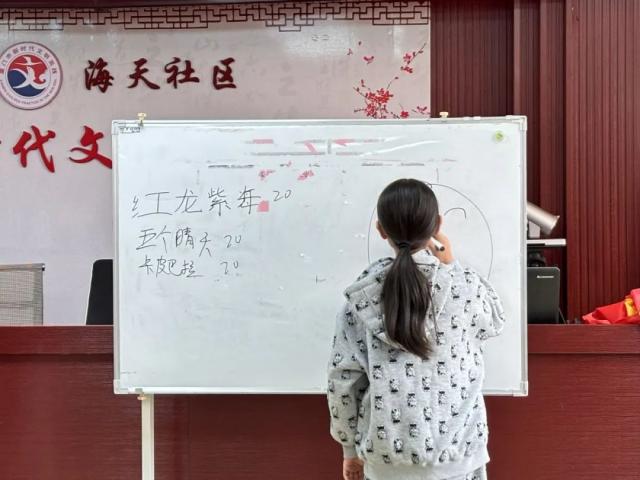 海天社区
代文
红龙紫年 20
五个晴天 20
卡皮巴拉 20